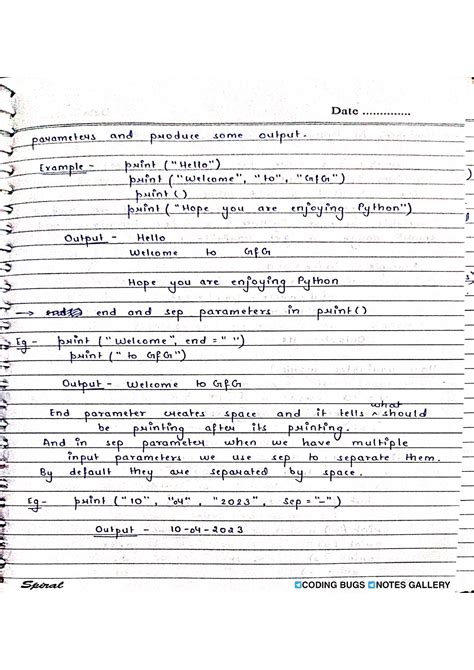 Date ..............
parameters and produce some output.
Example - print ("Hello")
print ("Welcome", "to", "GfG")
print ()
print ("Hope you are enjoying Python")
Output - Hello
Welcome to GfG
Hope you are enjoying Python
→ end and sep parameters in print()
Eg - print ("Welcome", end = " ")
print (" to GfG")
Output - Welcome to GfG
End parameter creates space and it tells ^what should
be printing after its printing.
And in sep parameter when we have multiple
input parameters we use sep to separate them.
By default they are separated by space.
Eg - print ("10", "04", "2023", sep = "-")
Output - 10-04-2023
Spiral
CODING BUGS NOTES GALLERY